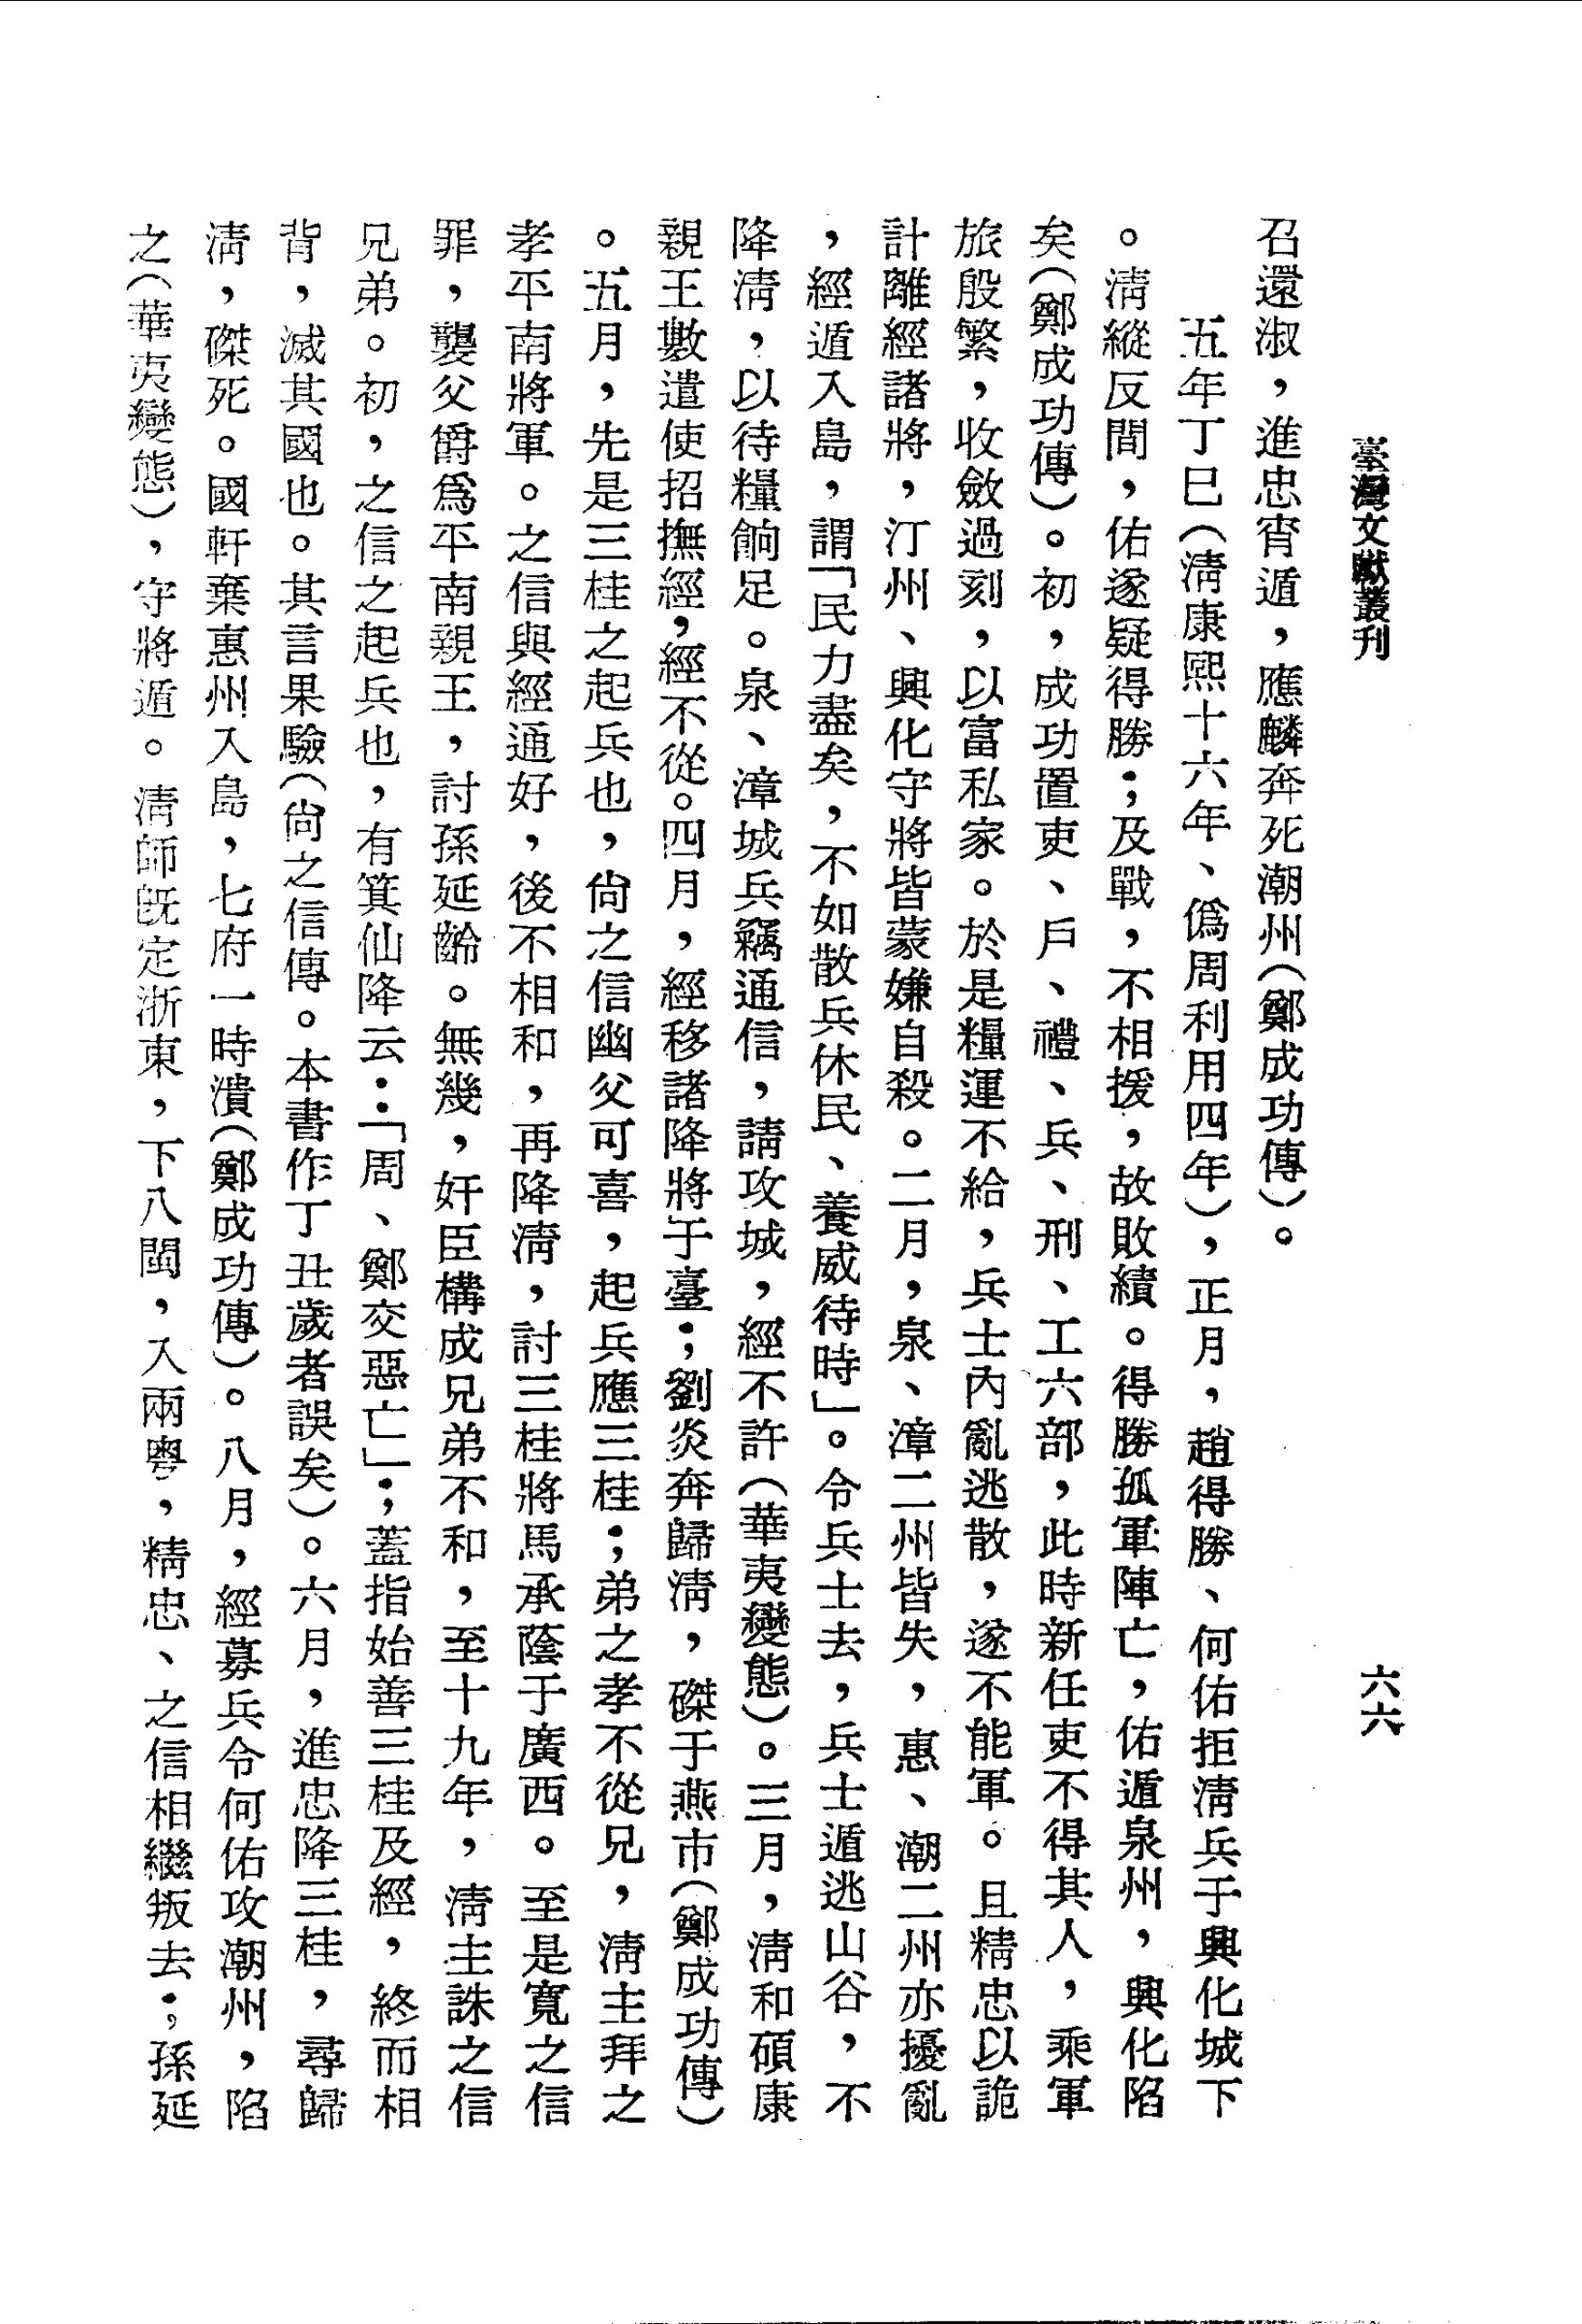 臺灣文獻叢刊
六六
召還淑，進忠宵遁，應麟奔死潮州（鄭成功傳）。
五年丁巳（淸康熙十六年、僞周利用四年），正月，趙得勝、何佑拒淸兵于興化城下
。淸縱反間，佑遂疑得勝；及戰，不相援，故敗績。得勝孤軍陣亡，佑遁泉州，興化陷
矣（鄭成功傳）。初，成功置吏、戶、禮、兵、刑、工六部，此時新任吏不得其人，乘軍
旅殷繁，收斂過刻，以富私家。於是糧運不給，兵士內亂逃散，遂不能軍。且精忠以詭
計離經諸將，汀州、興化守將皆蒙嫌自殺。二月，泉、漳二州皆失，惠、潮二州亦擾亂
，經遁入島，謂「民力盡矣，不如散兵休民、養威待時」。令兵士去，兵士遁逃山谷，不
降淸，以待糧餉足。泉、漳城兵竊通信，請攻城，經不許（華夷變態）。三月，淸和碩康
親王數遣使招撫經，經不從。四月，經移諸降將于臺；劉炎奔歸淸，磔于燕市（鄭成功傳）
。五月，先是三桂之起兵也，尙之信幽父可喜，起兵應三桂；弟之孝不從兄，淸主拜之
孝平南將軍。之信與經通好，後不相和，再降淸，討三桂將馬承蔭于廣西。至是寬之信
罪，襲父爵爲平南親王，討孫延齡。無幾，奸臣構成兄弟不和，至十九年，淸主誅之信
兄弟。初，之信之起兵也，有箕仙降云：「周、鄭交惡亡」；蓋指始善三桂及經，終而相
背，滅其國也。其言果驗（尙之信傳。本書作丁丑歲者誤矣）。六月，進忠降三桂，尋歸
淸，磔死。國軒棄惠州入島，七府一時潰（鄭成功傳）。八月，經募兵令何佑攻潮州，陷
之（華夷變態），守將遁。淸師旣定浙東，下八閩，入兩粵，精忠、之信相繼叛去；孫延